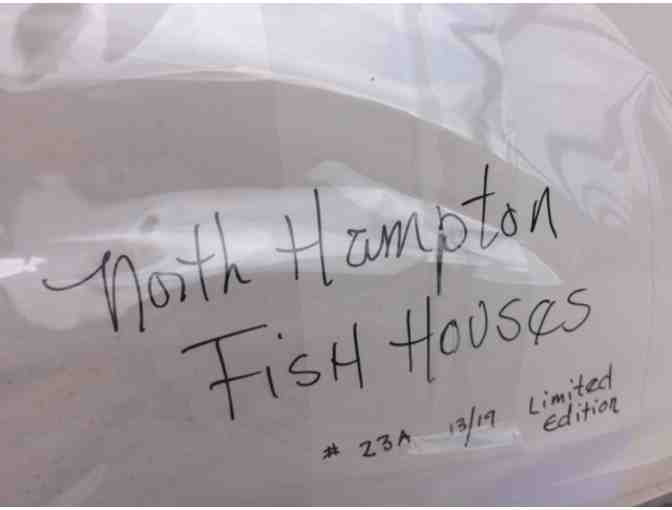 North Hampton
Fish Houses
# 23A 13/19 Limited
Edition